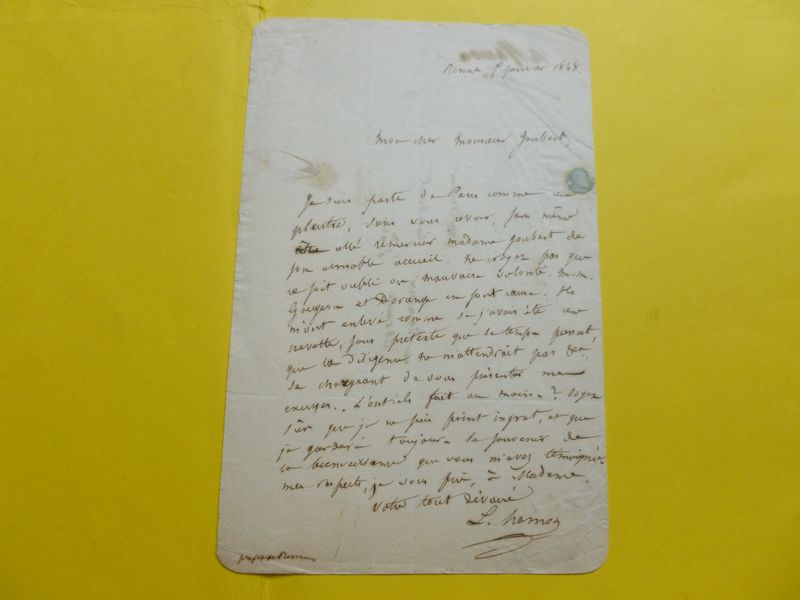 Rennes 1 janvier 1848.
Mon cher Monsieur Joubert,
Je suis parti de Paris comme un
pleutre, sans vous avoir, sans même
allé remercier madame Joubert de
son aimable accueil. Ne croyez pas que
ce soit oubli ou mauvaise volonté. M.M.
et Dorange en sont cause. Ils
m'ont enlevé comme si j'avais été une
crevette, sous prétexte que le temps pressait,
que la Diligence ne m'attendrait pas &a,
se chargeant de vous présenter mes
excuses. L'ont ils fait au moins ? Soyez
sûr que je ne suis point ingrat, et que
je garderai toujours le souvenir de
la bienveillance que vous m'avez témoignée
mes respects, je vous prie, à Madame.
Votre tout dévoué
L. hamon